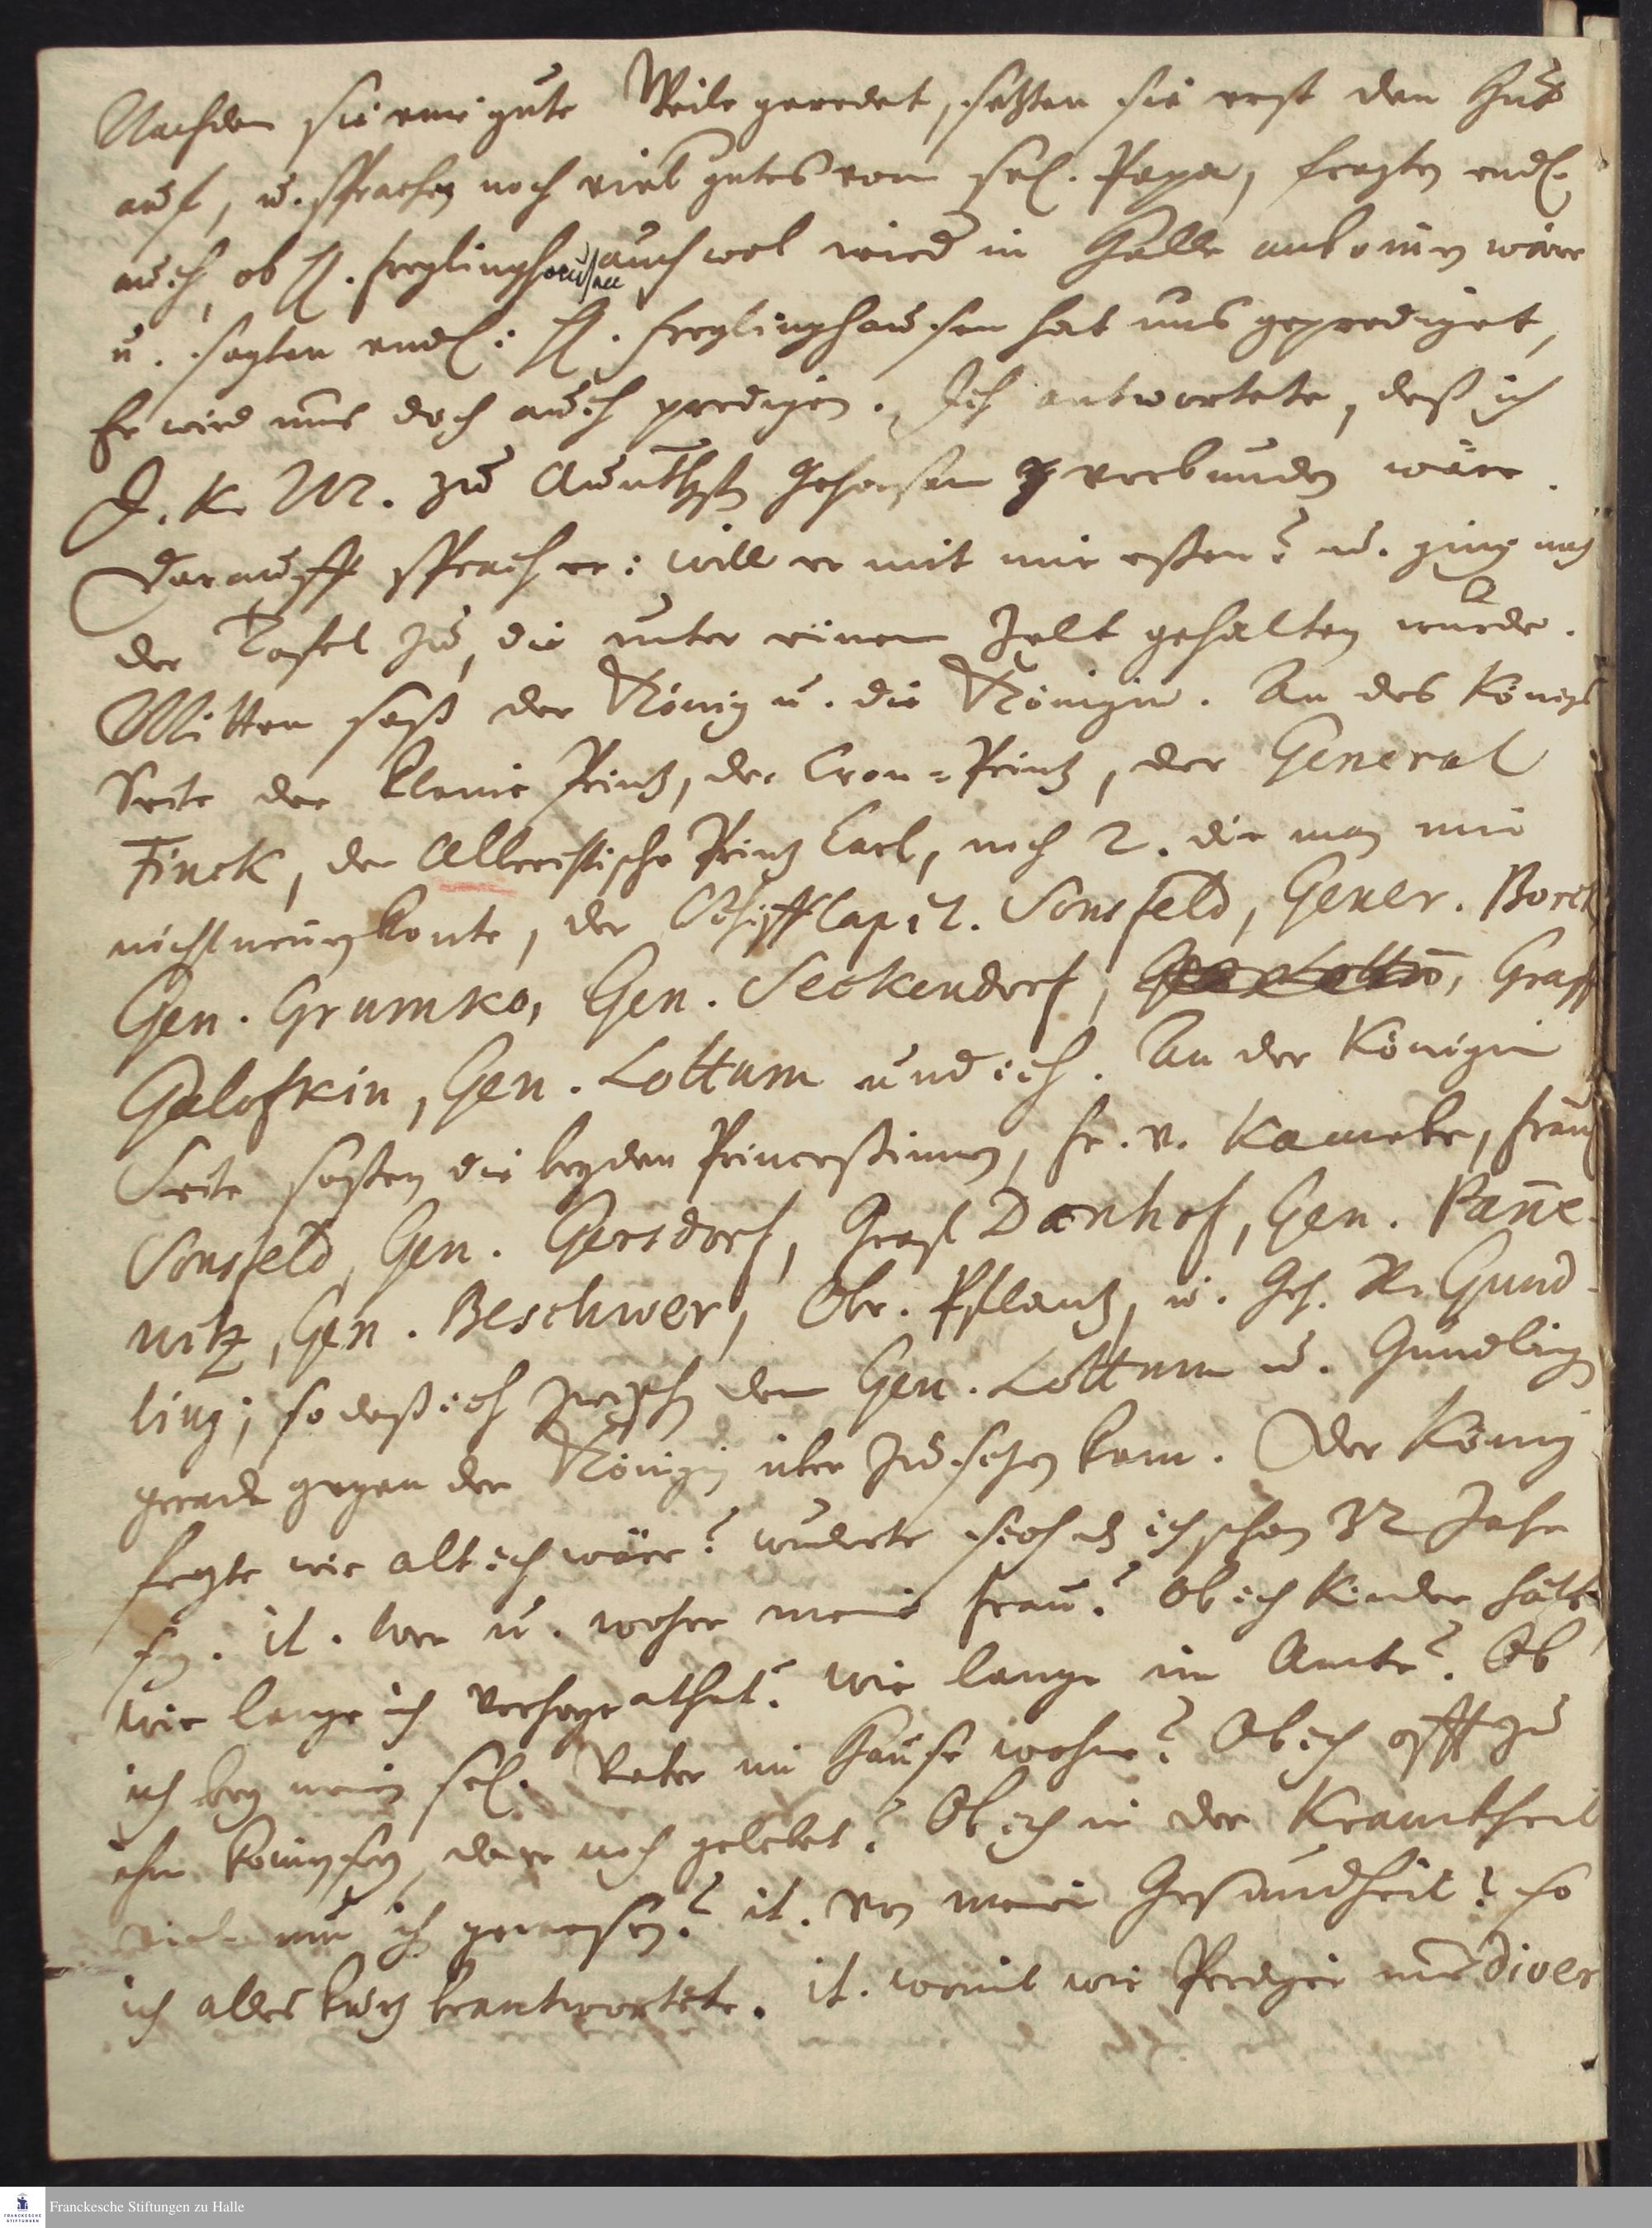 Nachdem sie eine gute Weile geredet, setzten sie erst den Hut
auf, u. sprachen noch viel gutes vom sel. Papa, fragten endl.
auch, ob H. Freylinghausen auch wol wied in Halle ankommen wäre
u. sagten endl: H. Freylinghausen hat uns geprediget,
Er wird uns doch auch predigen. Ich antwortete, daß ich
J. K. M. zu Gehorsam verbunden wäre.
Darauff sprach er: will er mit mir eßen? u. ging nach
der Tafel zu, die unter einem Zelt gehalten wurde.
Mitten saß der König u. die Königin. An des Königs
Seite der kleine Printz, der Cron-Printz, der General
Finck, der Printz Carl, noch 2. die man mir
nicht nennen konte, der Schiff Capit. Sonsfeld, Gener. Borck
Gen. Grumko, Gen. Seckendorf, Graff
Golofkin, Gen. Lottum und ich. An der Königin
Seite saßen die beyden Princeßinnen, Fr. v. Kameke, Frau
Sonsfeld, Gen. Gersdorf, Graf Dönhof, Gen. Panne-
witz, Gen. Beschwer, Obr. Pflantz, u. Geh. R. Gund-
ling; so daß ich zwischen dem Gen. Lottum u. Gundling
gerade gegen der Königin über zu sitzen kam. Der König
fragte wie alt ich wäre? wunderte sich dß ich schon 32 Jahr
sey. it. wer u. woher meine Frau? Ob ich Kinder hätte
wie lange ich verheyrathet? wie lange im Amte? Ob
ich bey mein sel. Vater im Hause wohne? Ob ich offt zu
ihm kommen sey, da er noch gelebet? Ob ich in der Kranckheit
viel um ihn gewesen? it. von meiner Gesundheit? so
ich alles kurtz beantwortete. it. womit wir Prediger uns diver
Franckesche Stiftungen zu Halle
FRANCKESCHE
STIFTUNGEN